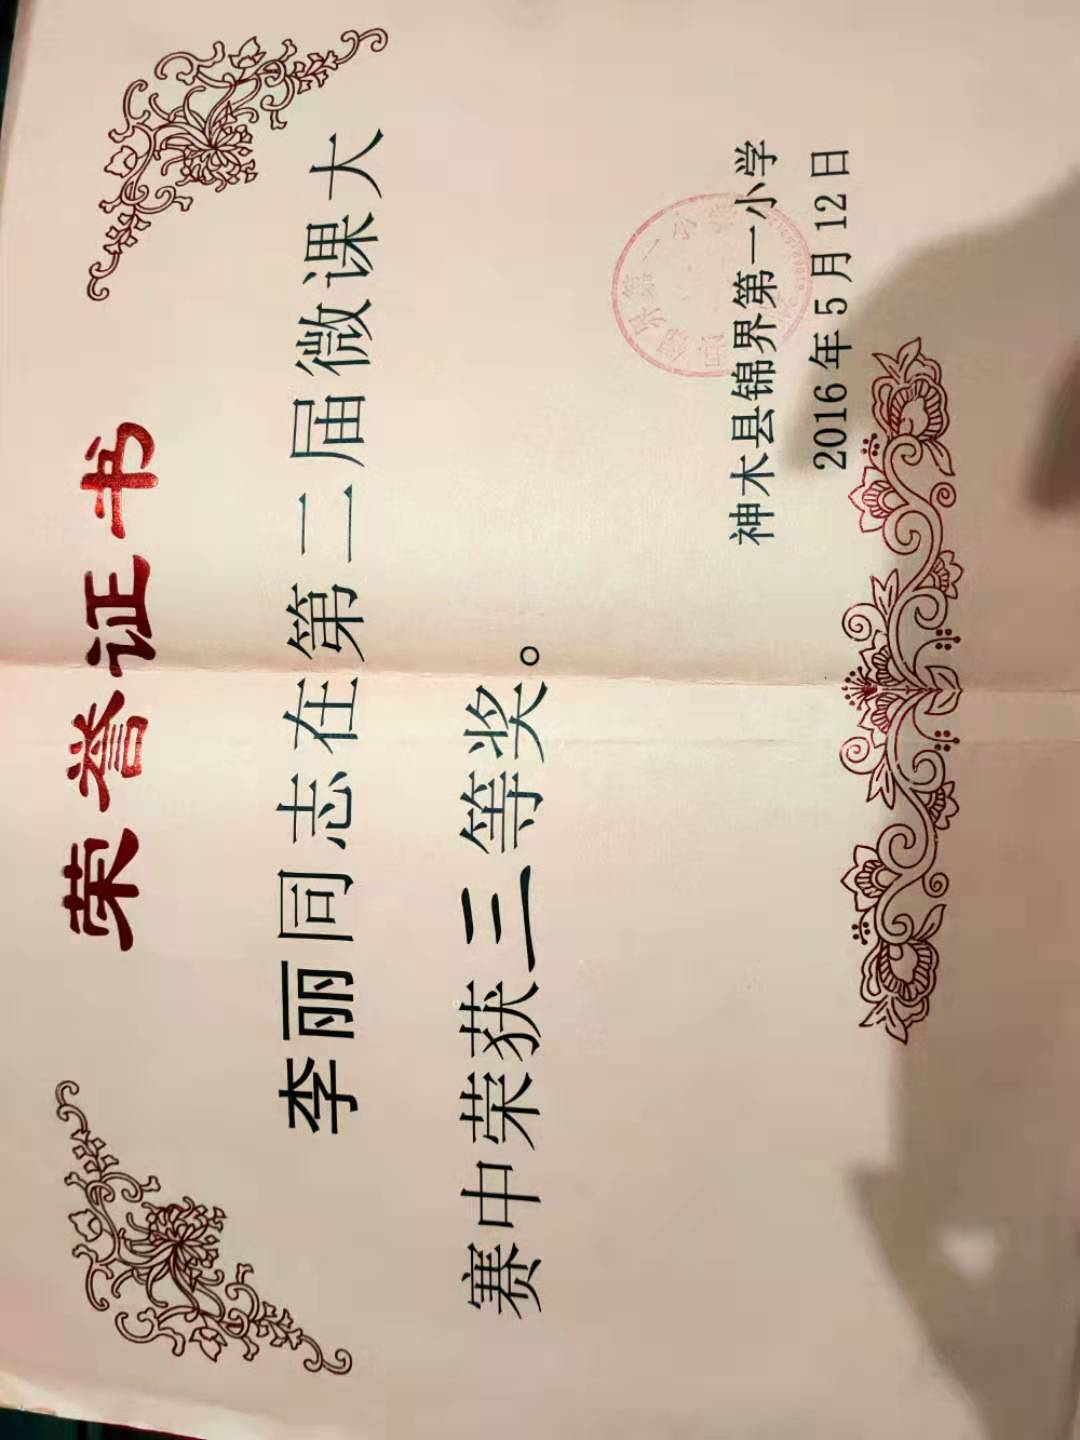 荣誉证书
李丽同志在第二届微课大
赛中荣获三等奖。
神木县锦界第一小学
2016年5月12日